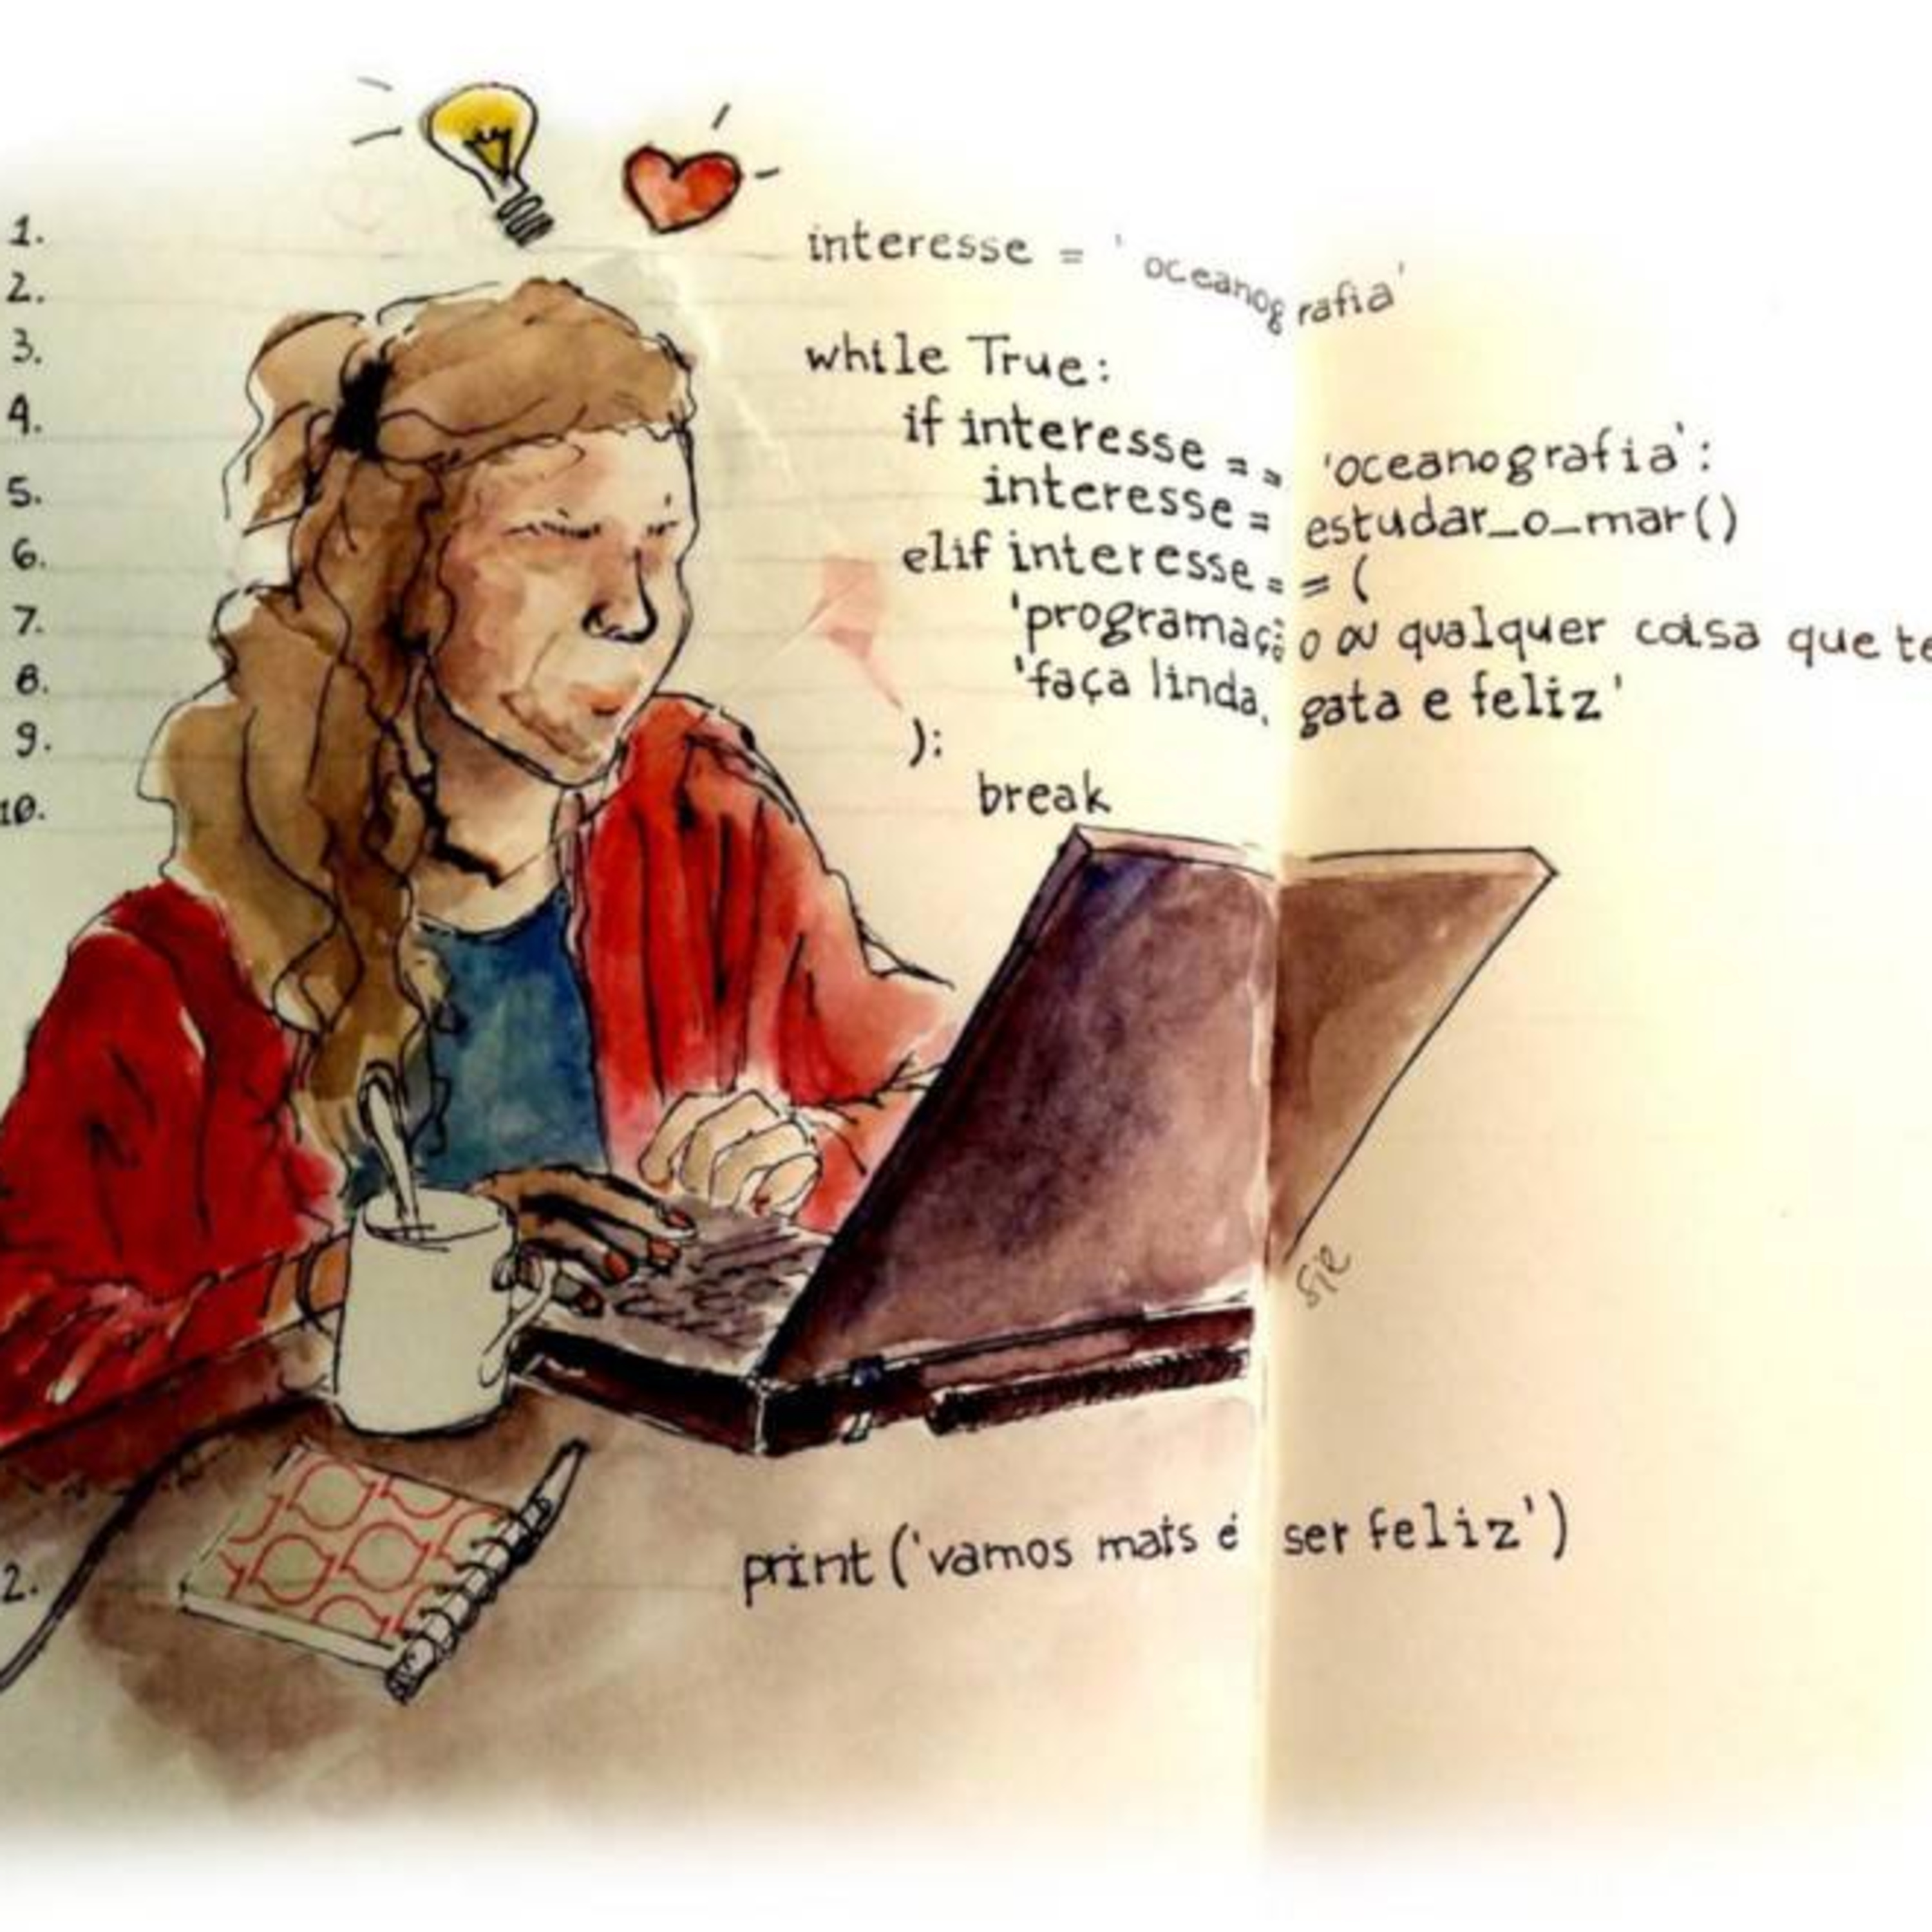 1. interesse = 'oceanografia'
2.
3. while True:
4. if interesse == 'oceanografia':
5. interesse = estudar_o_mar()
6. elif interesse == (
7. 'programação ou qualquer coisa que te
8. 'faça linda, gata e feliz'
9. ):
10. break
2. print('vamos mais é ser feliz')